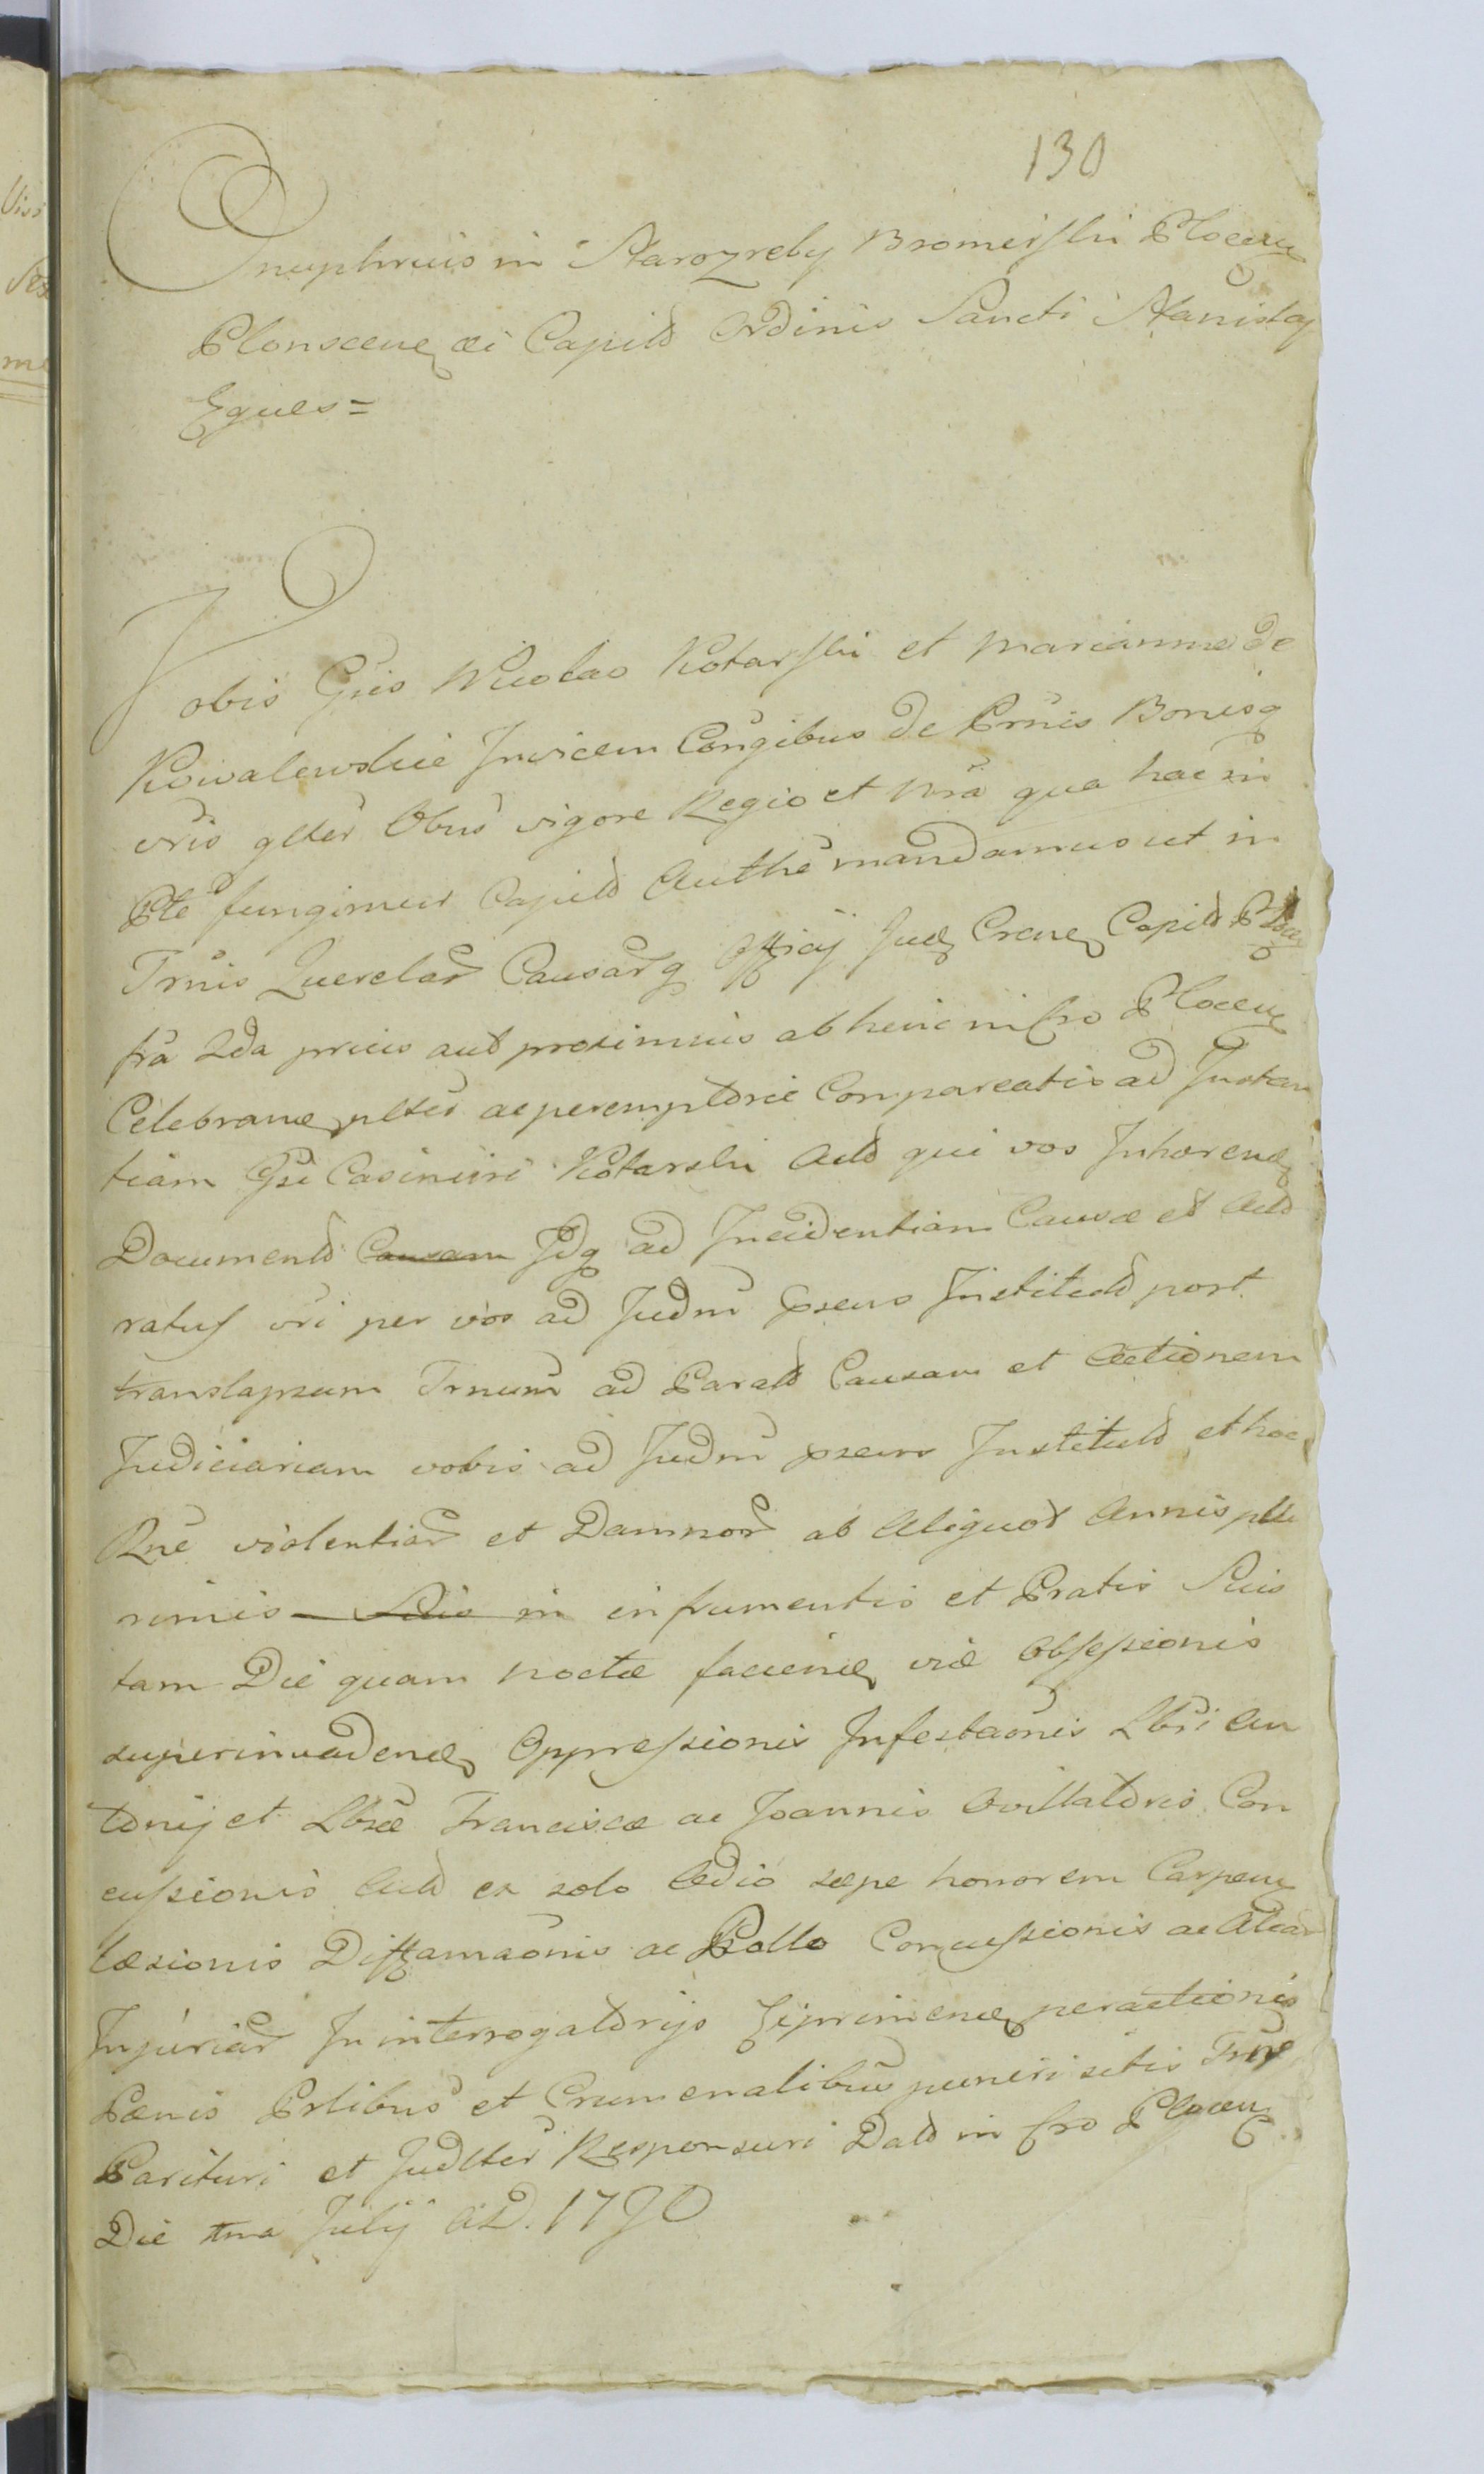 130
Onuphrius in Starozreby Bromirski Plocen
Plonscen ac Capits Ordinis Sancti Stanislaj
Eques =
Vobis Gsis Nicolao Kotarski et Marianna de
Kowalewskie Invicem Congibus de Prnis Bonisq
vris glter Obus vigore Regio et nra qua hac in
Pte fungimur Capits Autthe mandamus ut in
Trnis Querelar Causarq Officij Jud Crcen Capits Plocen
fra 2da pricis aut proximius ab hinc in Cro Plocen
Celebran plter ac peremptorie Compareatis ad Instan
tiam Gsi Casimiri Kotarski Acts qui vos Inhaerend
Documents Causam Idq ad Incidentiam Causae et Acto
ratus vri per vos ad Judm psens Institut post
translapsum Trnum ad Parats Causam et Actionem
Judiciariam vobis ad Judm psens Instituts et hoc
Rne violentiar et Damnor ab Aliquot Annis plu
rimis Suis in in frumentis et Pratis Suis
tam Die quam nocte faciend via Obsessionis
superinvadend Oppressionis Infestaonis Lbri An
tonij et Lbrae Franciscae ac Joannis Ovillatoris Con
cussionis Acts ex solo Odio saepe honorem Carpen
laesionis Diffamaonis ac Pollo Concussionis ac Aliar
Injuriar In interrogatorijs Exprimend peractionis
Paenis Pslibus et Crumenalibus puniri sitis Trno
Parituri et Judlter Responsuri Dats in Cro Plocen
Die tma Julij A.D. 1790